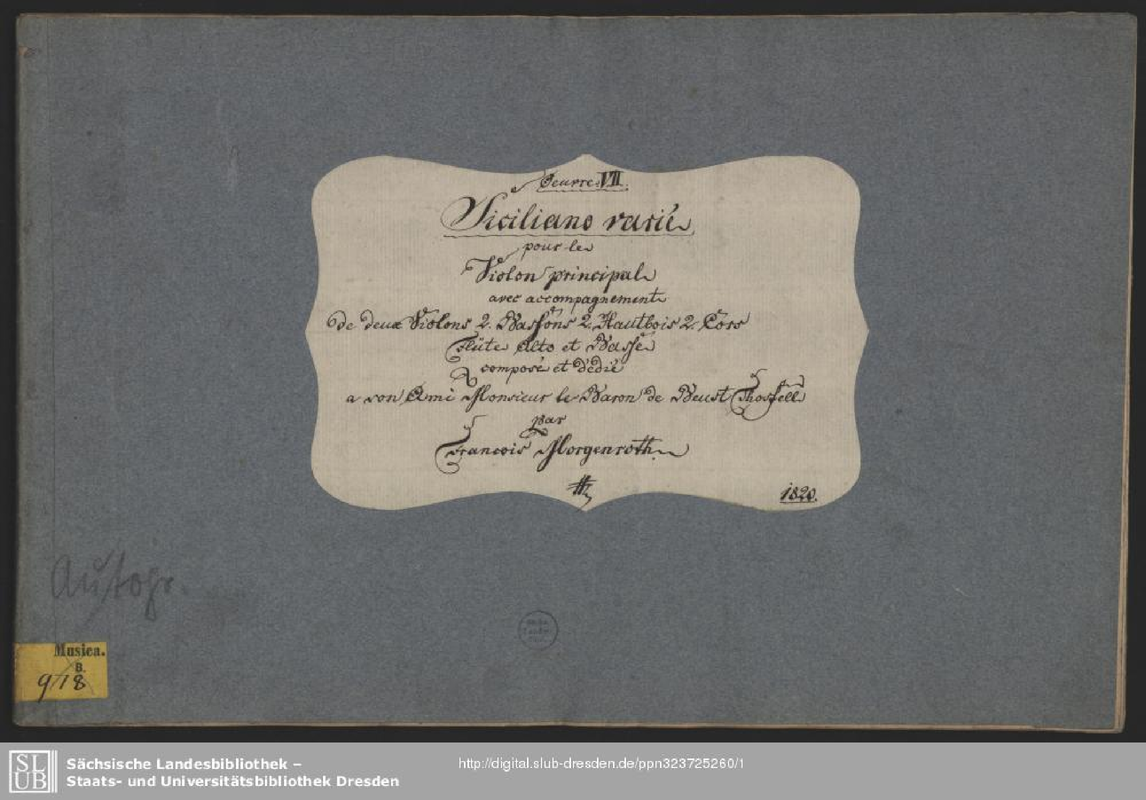 Oeuvre VII.
Siciliano varié
pour le
Violon principal
avec accompagnement
de deux Violons 2. Bassons 2. Hautbois 2. Cors
Flûte Alto et Basse
composé et dédié
a son Ami Monsieur le Baron de Beust Thosfell
par
Francois Morgenroth.
1820.
Autogr.
Musica.
B.
918
SLUB
Sächsische Landesbibliothek –
Staats- und Universitätsbibliothek Dresden
http://digital.slub-dresden.de/ppn323725260/1